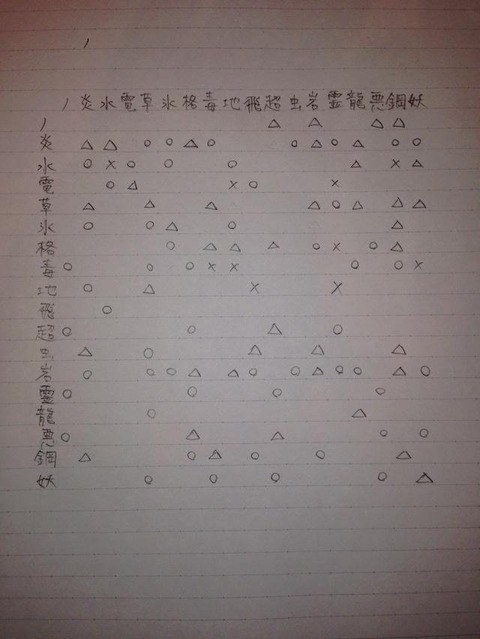 ノ
ノ炎水電草氷格毒地飛超虫岩霊龍悪鋼妖
ノ △ △ △ △
炎 △ △ ○ ○ △ ○ ○ △ ○ △ ○ ○
水 ○ × ○ ○ ○ △ × △
電 ○ △ × ○ ×
草 △ ○ △ △ ○ △ △ △
氷 ○ ○ △ ○ △
格 ○ △ △ △ ○ × ○ △
毒 ○ ○ ○ × × ○ ○ ×
地 ○ △ × ×
飛 ○
超 ○ ○ △ ○
虫 △ ○ △ △ △
岩 ○ ○ ○ △ △ ○ ○ △ ○ ○ △ ○
霊 ○ ○ ○ ○
龍 ○ △
悪 ○ △ △ ○ ○
鋼 △ ○ △ ○ ○ △
妖 ○ ○ ○ ○ △